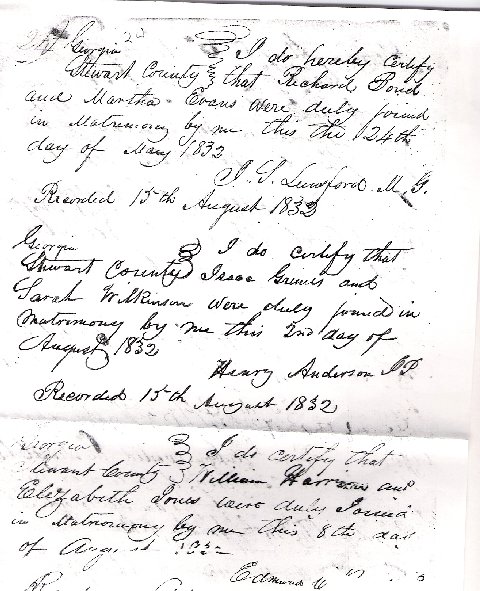 Georgia I do hereby certify
Stewart County that Richard Pond
and Martha Evans were duly joined
in Matrimony by me this the 24th
day of May 1832
J. S. Lunsford M.G.
Recorded 15th August 1832
Georgia I do certify that
Stewart County Isaac Grimes and
Sarah Wilkinson were duly joined in
matrimony by me this 2nd day of
August 1832
Henry Anderson JP
Recorded 15th August 1832
Georgia I do certify that
Stewart County William and
Elezabeth Jones were duly Joined
in Matrimony by me this 8th day
of August 1832
Edmund